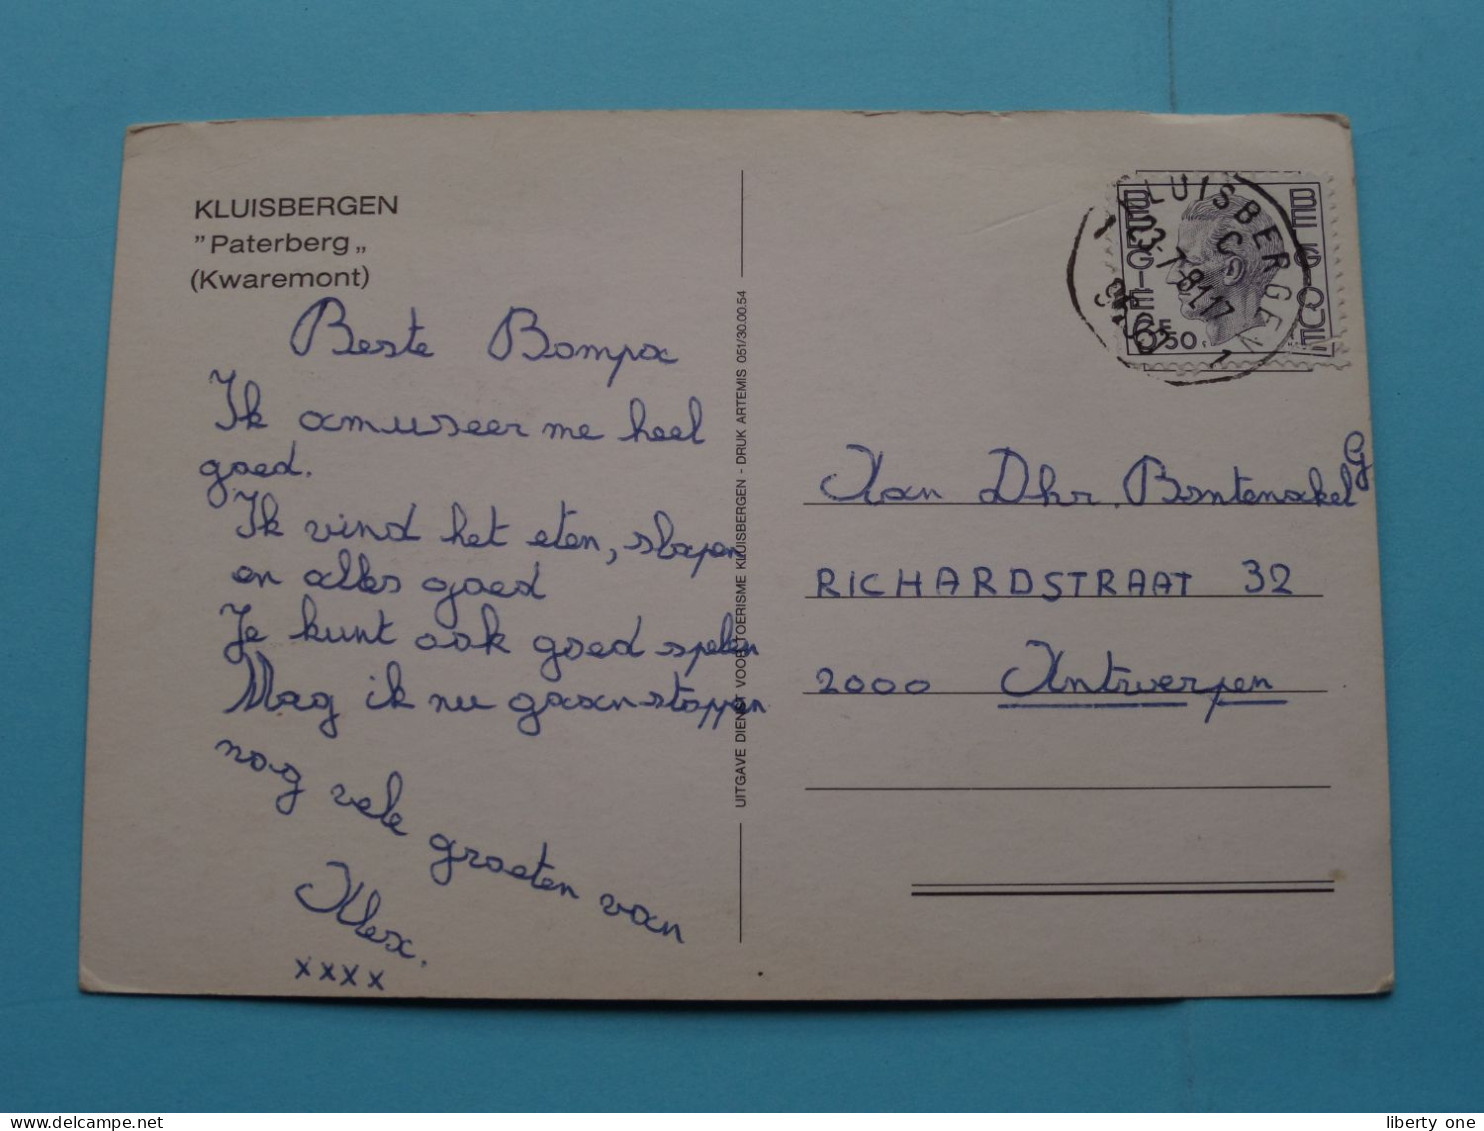 KLUISBERGEN
"Paterberg„
(Kwaremont)
Beste Bompa
Ik amuseer me heel
goed.
Ik vind het eten, slapen
en alles goed
Je kunt ook goed spelen
Mag ik nu gaan stappen
nog vele groeten van
Alex.
xxxx
UITGAVE DIENST VOOR TOERISME KLUISBERGEN - DRUK ARTEMIS 051/30.00.54
KLUISBERGEN
C
1 23-7-81.17 1
BELGIE BELGIQUE
6F50
Aan Dhr. Bontenakel G
RICHARDSTRAAT 32
2000 Antwerpen
liberty one